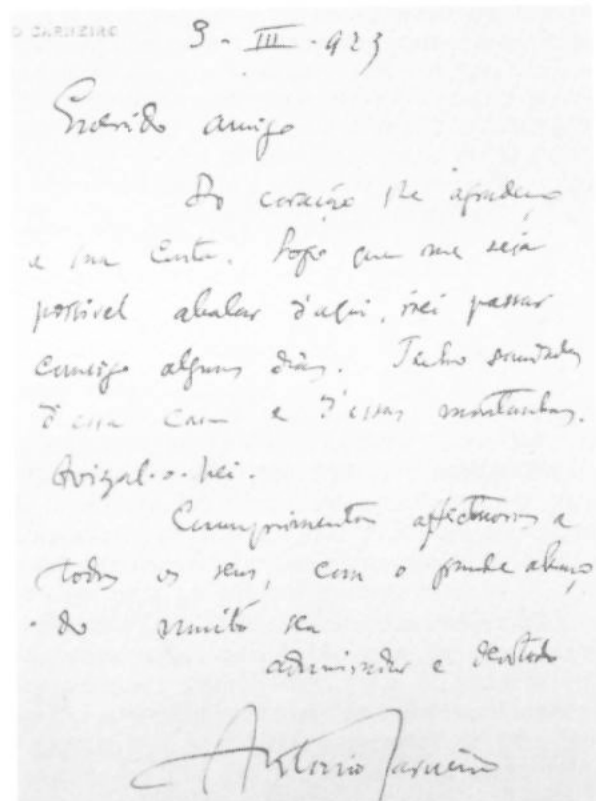 O CARNEIRO
9 - III - 923
Querido amigo
Do coração lhe agradeço
a sua Carta. Logo que me seja
possivel abalar d'aqui, irei passar
comsigo alguns dias. Tenho saudades
d'essa casa e d'essas montanhas.
Avizal-o-hei.
Cumprimentos affectuosos a
todos os seus, com o grande abraço
do muito seu
admirador e devotado
Antonio Carneiro